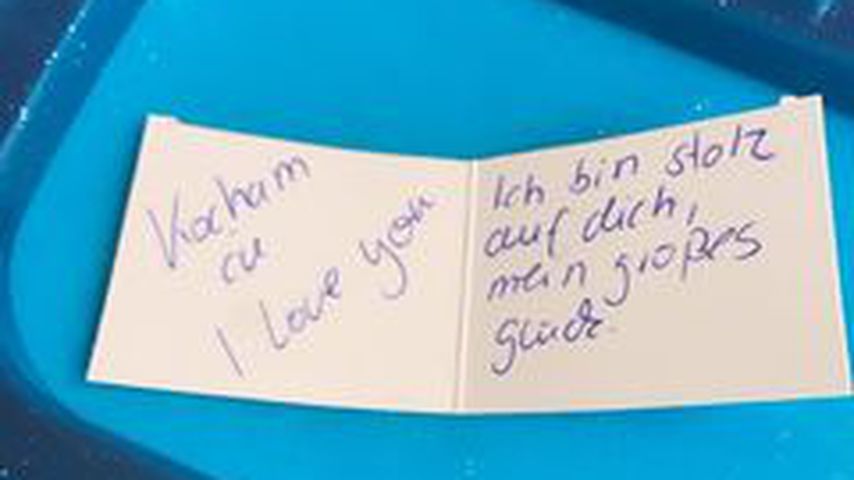 Kocham
cu
I love you
Ich bin stolz
auf dich,
mein großes
glück.